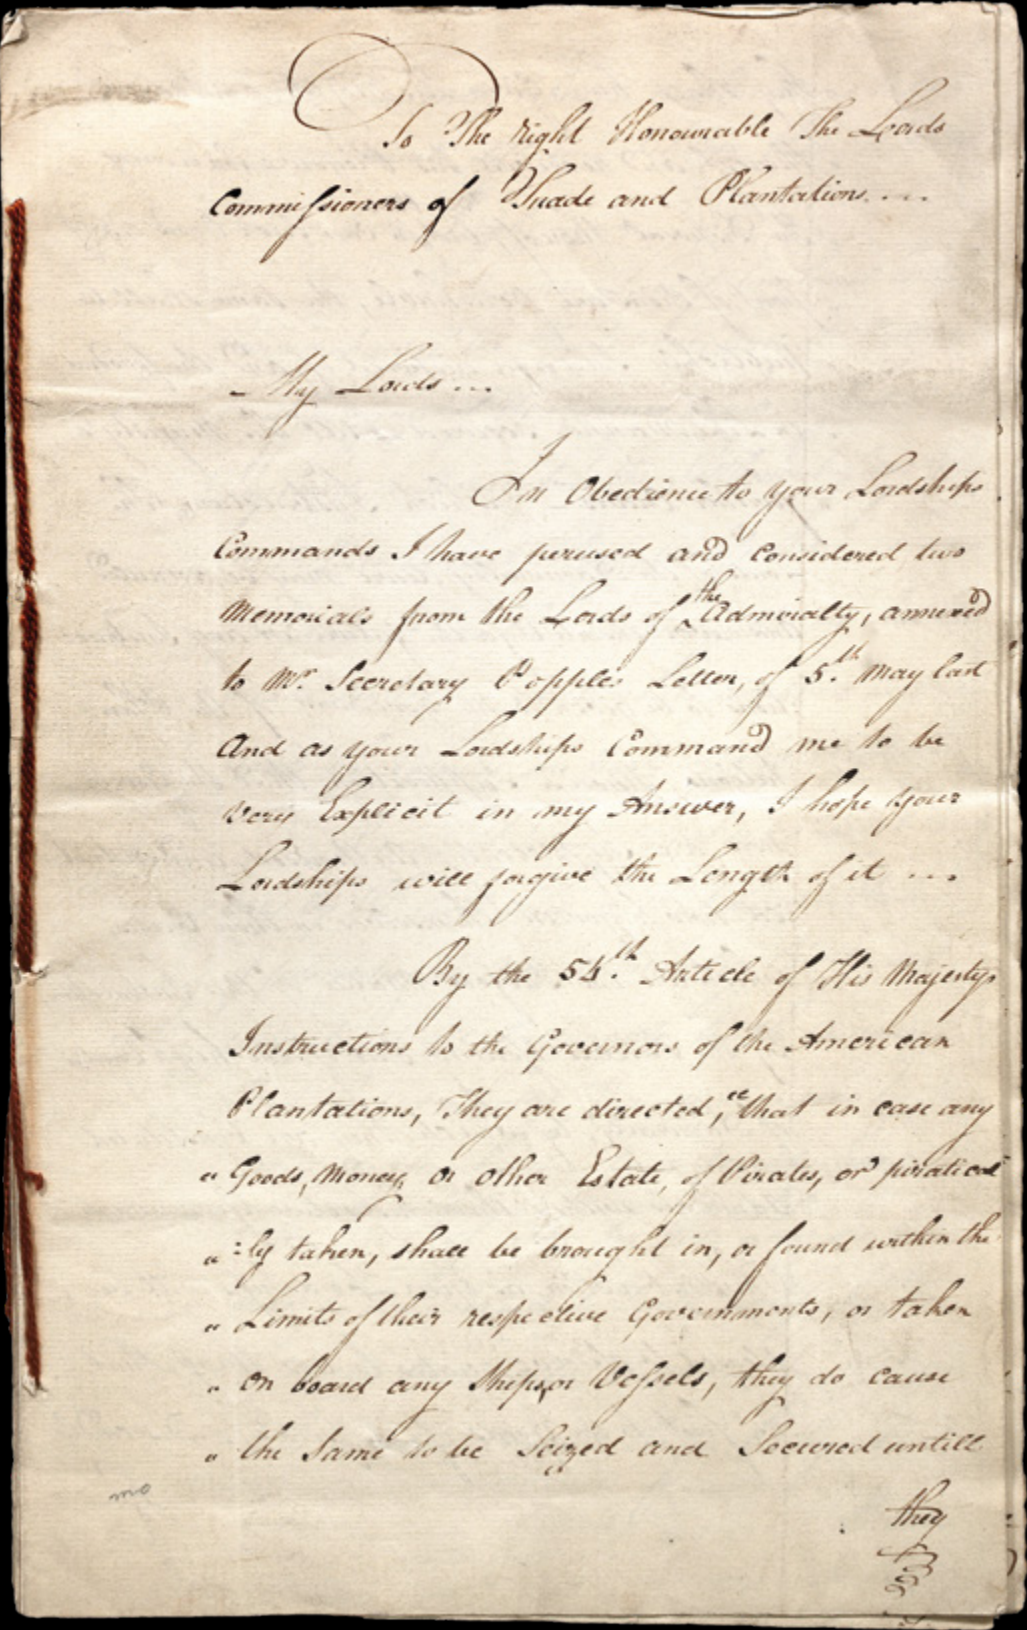 To The Right Honourable The Lords
Commissioners of Trade and Plantations ...
My Lords ...
In Obedience to your Lordships
Commands I have perused and considered two
Memorials from the Lords of the Admiralty, annexed
to Mr. Secretary Popples Letter, of 5.th May last
And as your Lordships Command me to be
very Explicit in my Answer, I hope your
Lordships will forgive the Length of it ...
By the 54.th Article of His Majestys
Instructions to the Governors of the American
Plantations, They are directed, "that in case any
" Goods, Money, or other Estate, of Pirates, or piratical
" :ly taken, shall be brought in, or found within the
" Limits of their respective Governments, or taken
" on board any Ships, or Vessels, they do cause
" the Same to be Seized and Secured untill
they